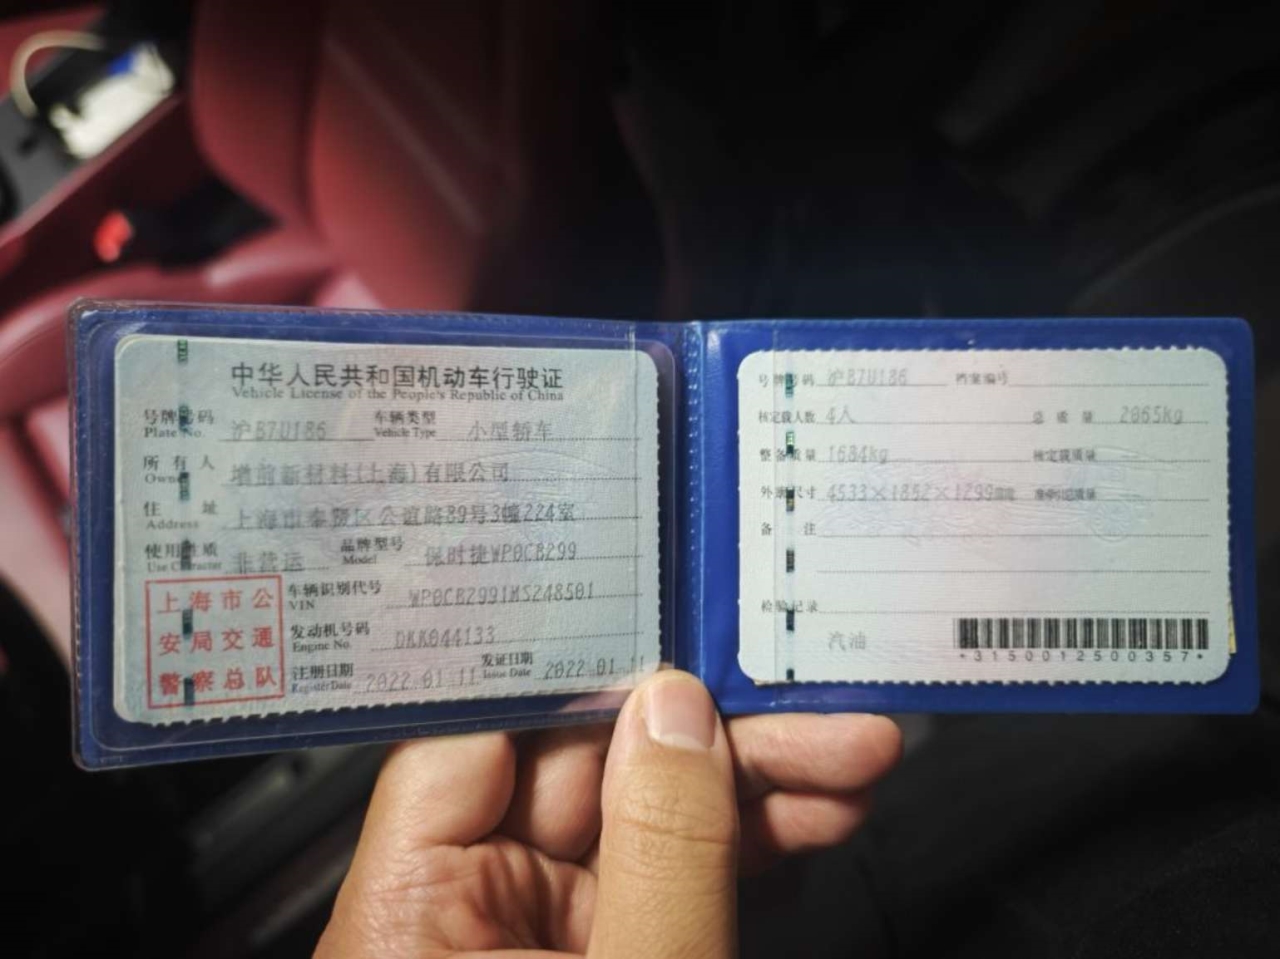 中华人民共和国机动车行驶证
Vehicle License of the People's Republic of China
号牌号码 Plate No. 沪B7U186 车辆类型 Vehicle Type 小型轿车
所有人 Owner 增前新材料(上海)有限公司
住址 Address 上海市奉贤区公谊路89号3幢224室
使用性质 Use Character 非营运 品牌型号 Model 保时捷WP0CB299
车辆识别代号 VIN WP0CB2991MS248501
发动机号码 Engine No. DKK044133
注册日期 Register Date 2022.01.11 发证日期 Issue Date 2022.01.11
上海市公
安局交通
警察总队
号牌号码 沪B7U186 档案编号
核定载人数 4人 总质量 2065kg
整备质量 1684kg 核定载质量
外廓尺寸 4533×1852×1299mm 准牵引总质量
备注
检验记录
汽油
*3150012500357*